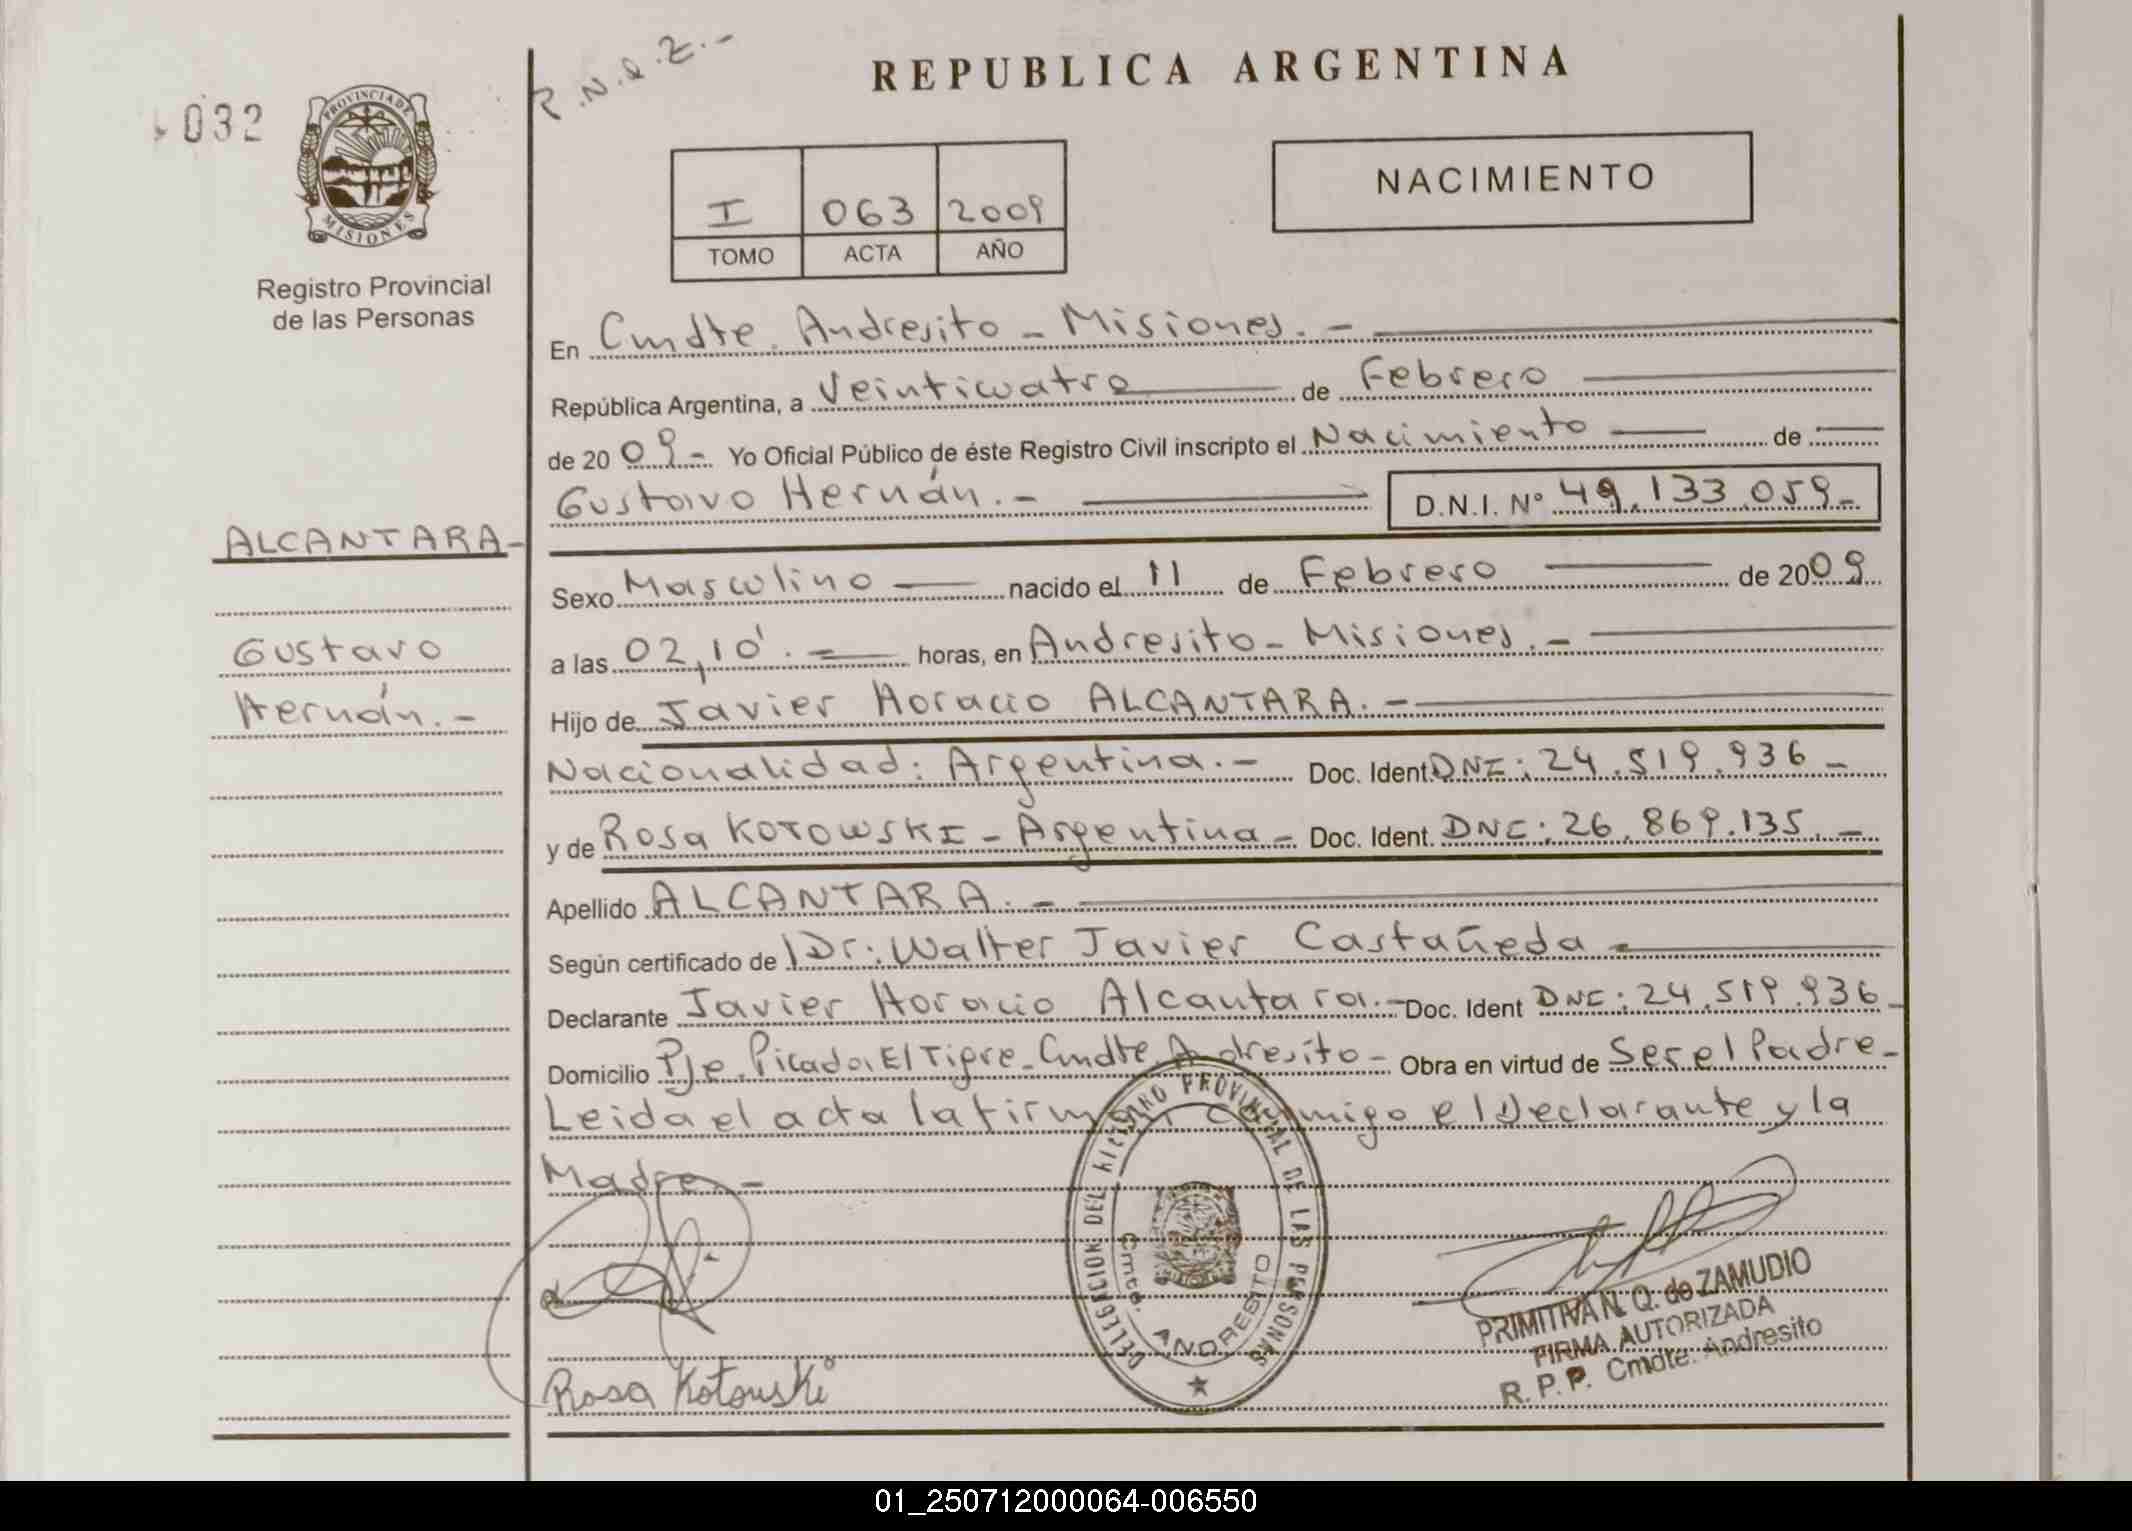 032
PROVINCIA DE
MISIONES
Registro Provincial
de las Personas
R.N.Q.Z.-
REPUBLICA ARGENTINA
I 063 2009
TOMO ACTA AÑO
NACIMIENTO
En Cmdte. Andresito - Misiones. -
República Argentina, a Veinticuatro de Febrero
de 20 09 - Yo Oficial Público de éste Registro Civil inscripto el Nacimiento de
Gustavo Hernán. - D.N.I. Nº 49.133.059-
ALCANTARA-
Gustavo
Hernán. -
Sexo Masculino nacido el 11 de Febrero de 2009
a las 02,10'. - horas, en Andresito - Misiones. -
Hijo de Javier Horacio ALCANTARA. -
Nacionalidad: Argentina. - Doc. Ident. DNI: 24.519.936 -
y de Rosa KOTOWSKI - Argentina - Doc. Ident. DNI: 26.869.135. -
Apellido ALCANTARA. -
Según certificado de Dr: Walter Javier Castañeda -
Declarante Javier Horacio Alcantara. - Doc. Ident DNI: 24.519.936 -
Domicilio Pje. Picada El Tigre - Cmdte. Andresito - Obra en virtud de Ser el Padre -
Leida el acta la firman conmigo el Declarante y la
Madre. -
DELEGACION DEL REGISTRO PROVINCIAL DE LAS PERSONAS
Cmte. ANDRESITO
PRIMITIVA N. Q. de ZAMUDIO
FIRMA AUTORIZADA
R. P. P. Cmdte. Andresito
Rosa Kotouski
01_250712000064-006550